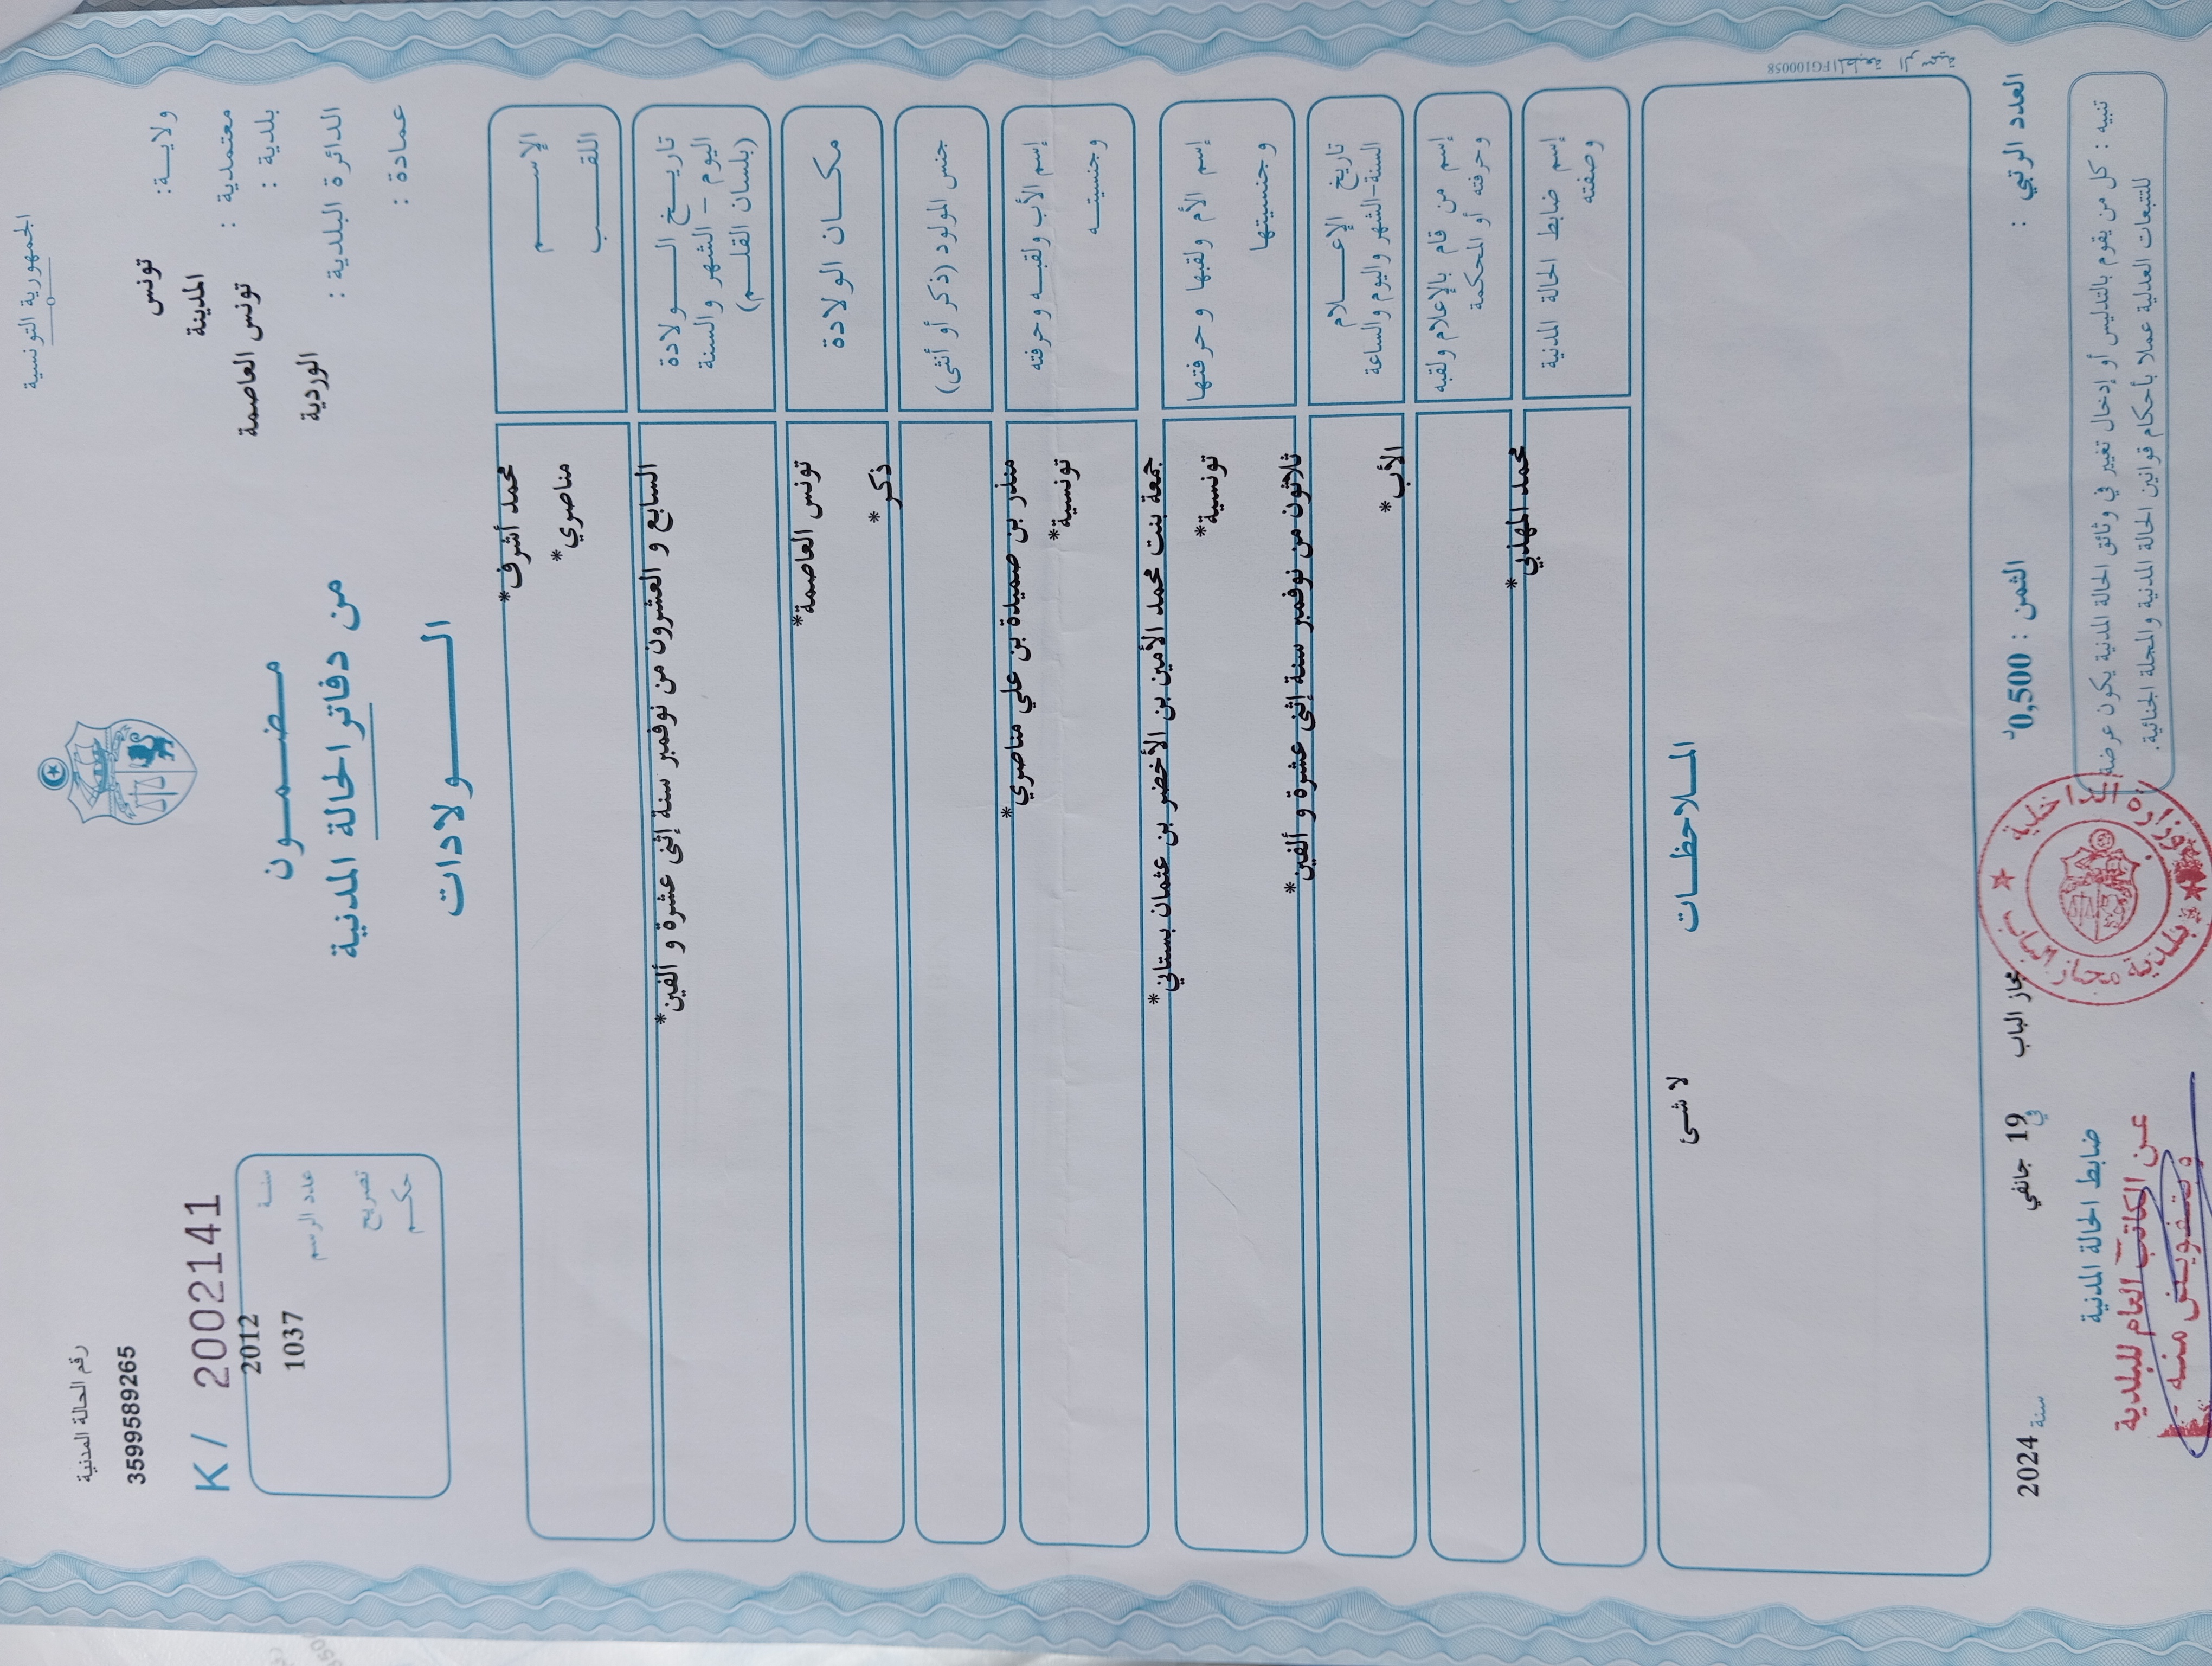 الجمهورية التونسية
رقم الحالة المدنية
3599589265
ولايـــة: تونس
معتمدية : المدينة
بلدية : تونس العاصمة
الدائرة البلدية : الوردية
عمادة :
K / 2002141
سنـة 2012
عدد الرسم 1037
تصريح
حكـم
مـضـمـــون
من دفاتر الحالة المدنية
الـــولادات
الإســـــم محمد أشرف*
اللقـــب مناصري*
تاريـــخ الـــولادة السابع و العشرون من نوفمبر سنة إثنى عشرة و ألفين*
اليوم - الشهر والسنة
(بلسان القلـــم)
مكـــان الولادة تونس العاصمة*
جنس المولود (ذكر أو أنثى) ذكر*
إسم الأب ولقبـه وحرفته منذر بن صميدة بن علي مناصري*
وجنسيتـــه تونسية*
إسم الأم ولقبها وحرفتها جمعة بنت محمد الأمين بن الأخضر بن عثمان بستاني*
وجنسيتها تونسية*
تاريخ الإعـــلام ثلاثون من نوفمبر سنة إثنى عشرة و ألفين*
السنة-الشهر واليوم والساعة
إسم من قام بالإعلام ولقبه الأب*
وحرفته أو المحكمة
إسم ضابط الحالة المدنية محمد المهذبي*
وصفته
المــلاحظــات
لا شئ
المطبعة الرسمية FG100058
العدد الرتبي :
الثمن : 0,500د
مجاز الباب في 19 جانفي سنة 2024
تنبيه : كل من يقوم بالتدليس أو إدخال تغيير في وثائق الحالة المدنية يكون عرضة
للتتبعات العدلية عملا بأحكام قوانين الحالة المدنية والمجلة الجنائية.
ضابط الحالة المدنية
وزارة الداخلية
بلدية مجاز الباب
عن الكاتب العام للبلدية
وبتفويض منه